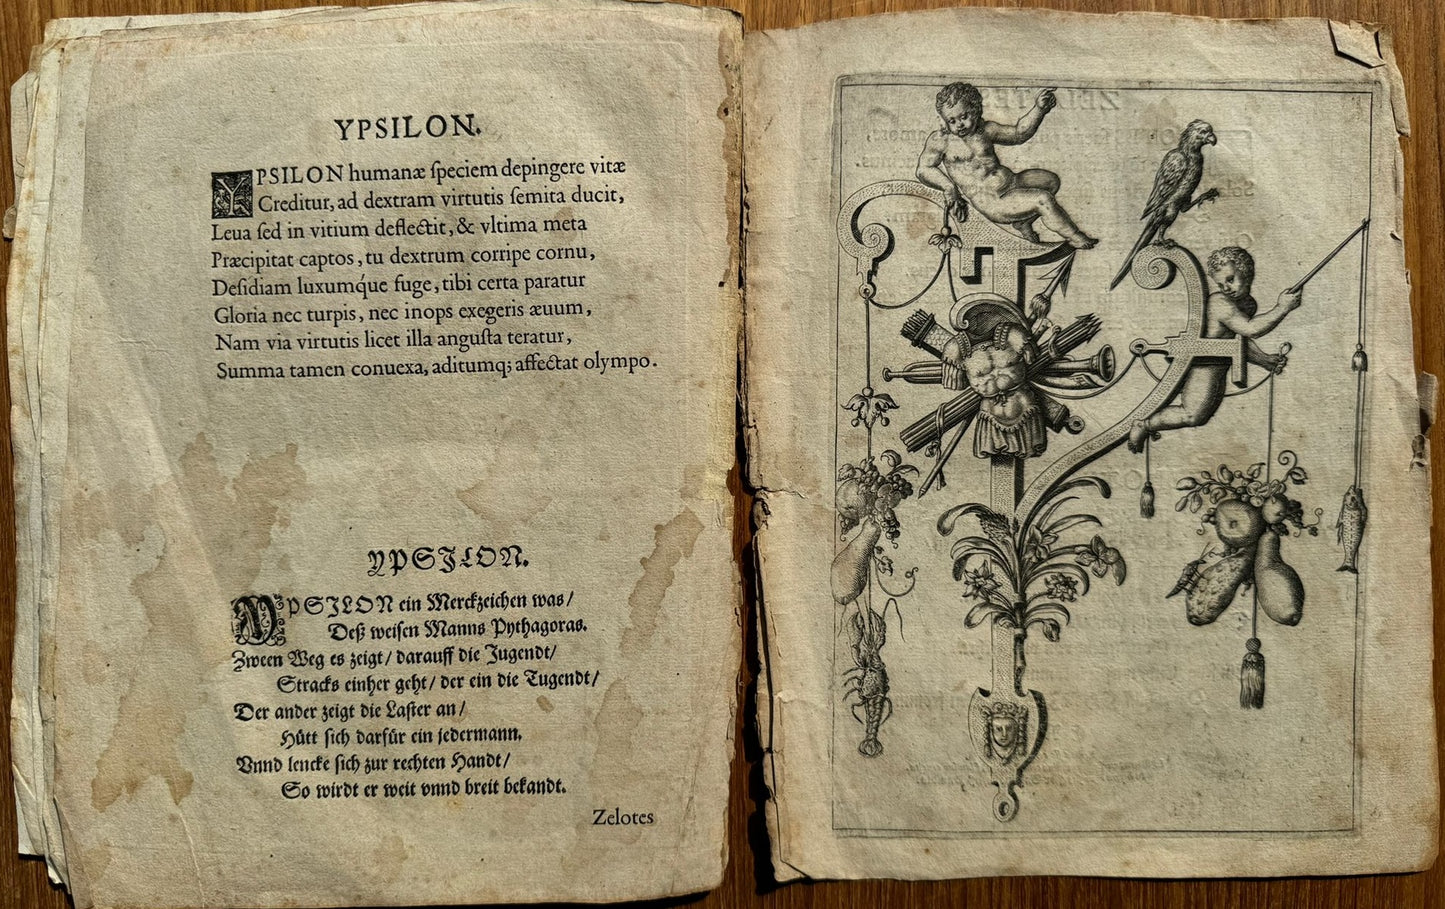 YPSILON.
YPSILON humanæ ſpeciem depingere vitæ
Creditur, ad dextram virtutis ſemita ducit,
Leua ſed in vitium deflectit, & vltima meta
Præcipitat captos, tu dextrum corripe cornu,
Deſidiam luxumq́ue fuge, tibi certa paratur
Gloria nec turpis, nec inops exegeris æuum,
Nam via virtutis licet illa anguſta teratur,
Summa tamen conuexa, aditumq; affectat olympo.
YPSILON.
YPSILON ein Merckzeichen was/
Deß weiſen Manns Pythagoras.
Zween Weg es zeigt/ darauff die Jugendt/
Stracks einher geht/ der ein die Tugendt/
Der ander zeigt die Laſter an/
Hütt ſich darfür ein jedermann.
Vnnd lencke ſich zur rechten Handt/
So wirdt er weit vnnd breit bekandt.
Zelotes
ZELOTES